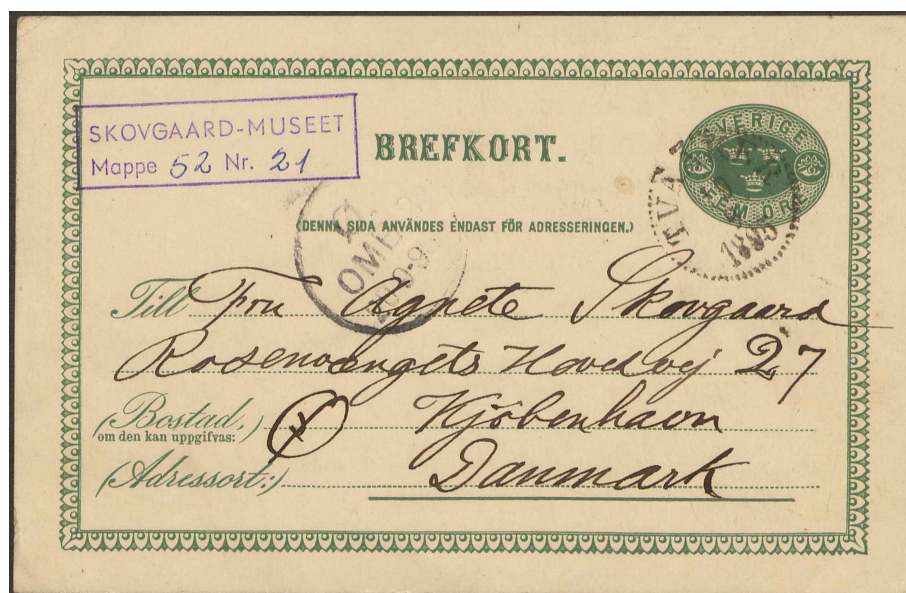 SKOVGAARD-MUSEET
Mappe 52 Nr. 21
BREFKORT.
SVERIGE
FEM ÖRE
1895
(DENNA SIDA ANVÄNDES ENDAST FÖR ADRESSERINGEN.)
OMB
Till Fru Agnete Skovgaard
Rosenvængets Hovedvej 27
(Bostad,
om den kan uppgifvas:)
Kjöbenhavn
(Adressort:) Danmark